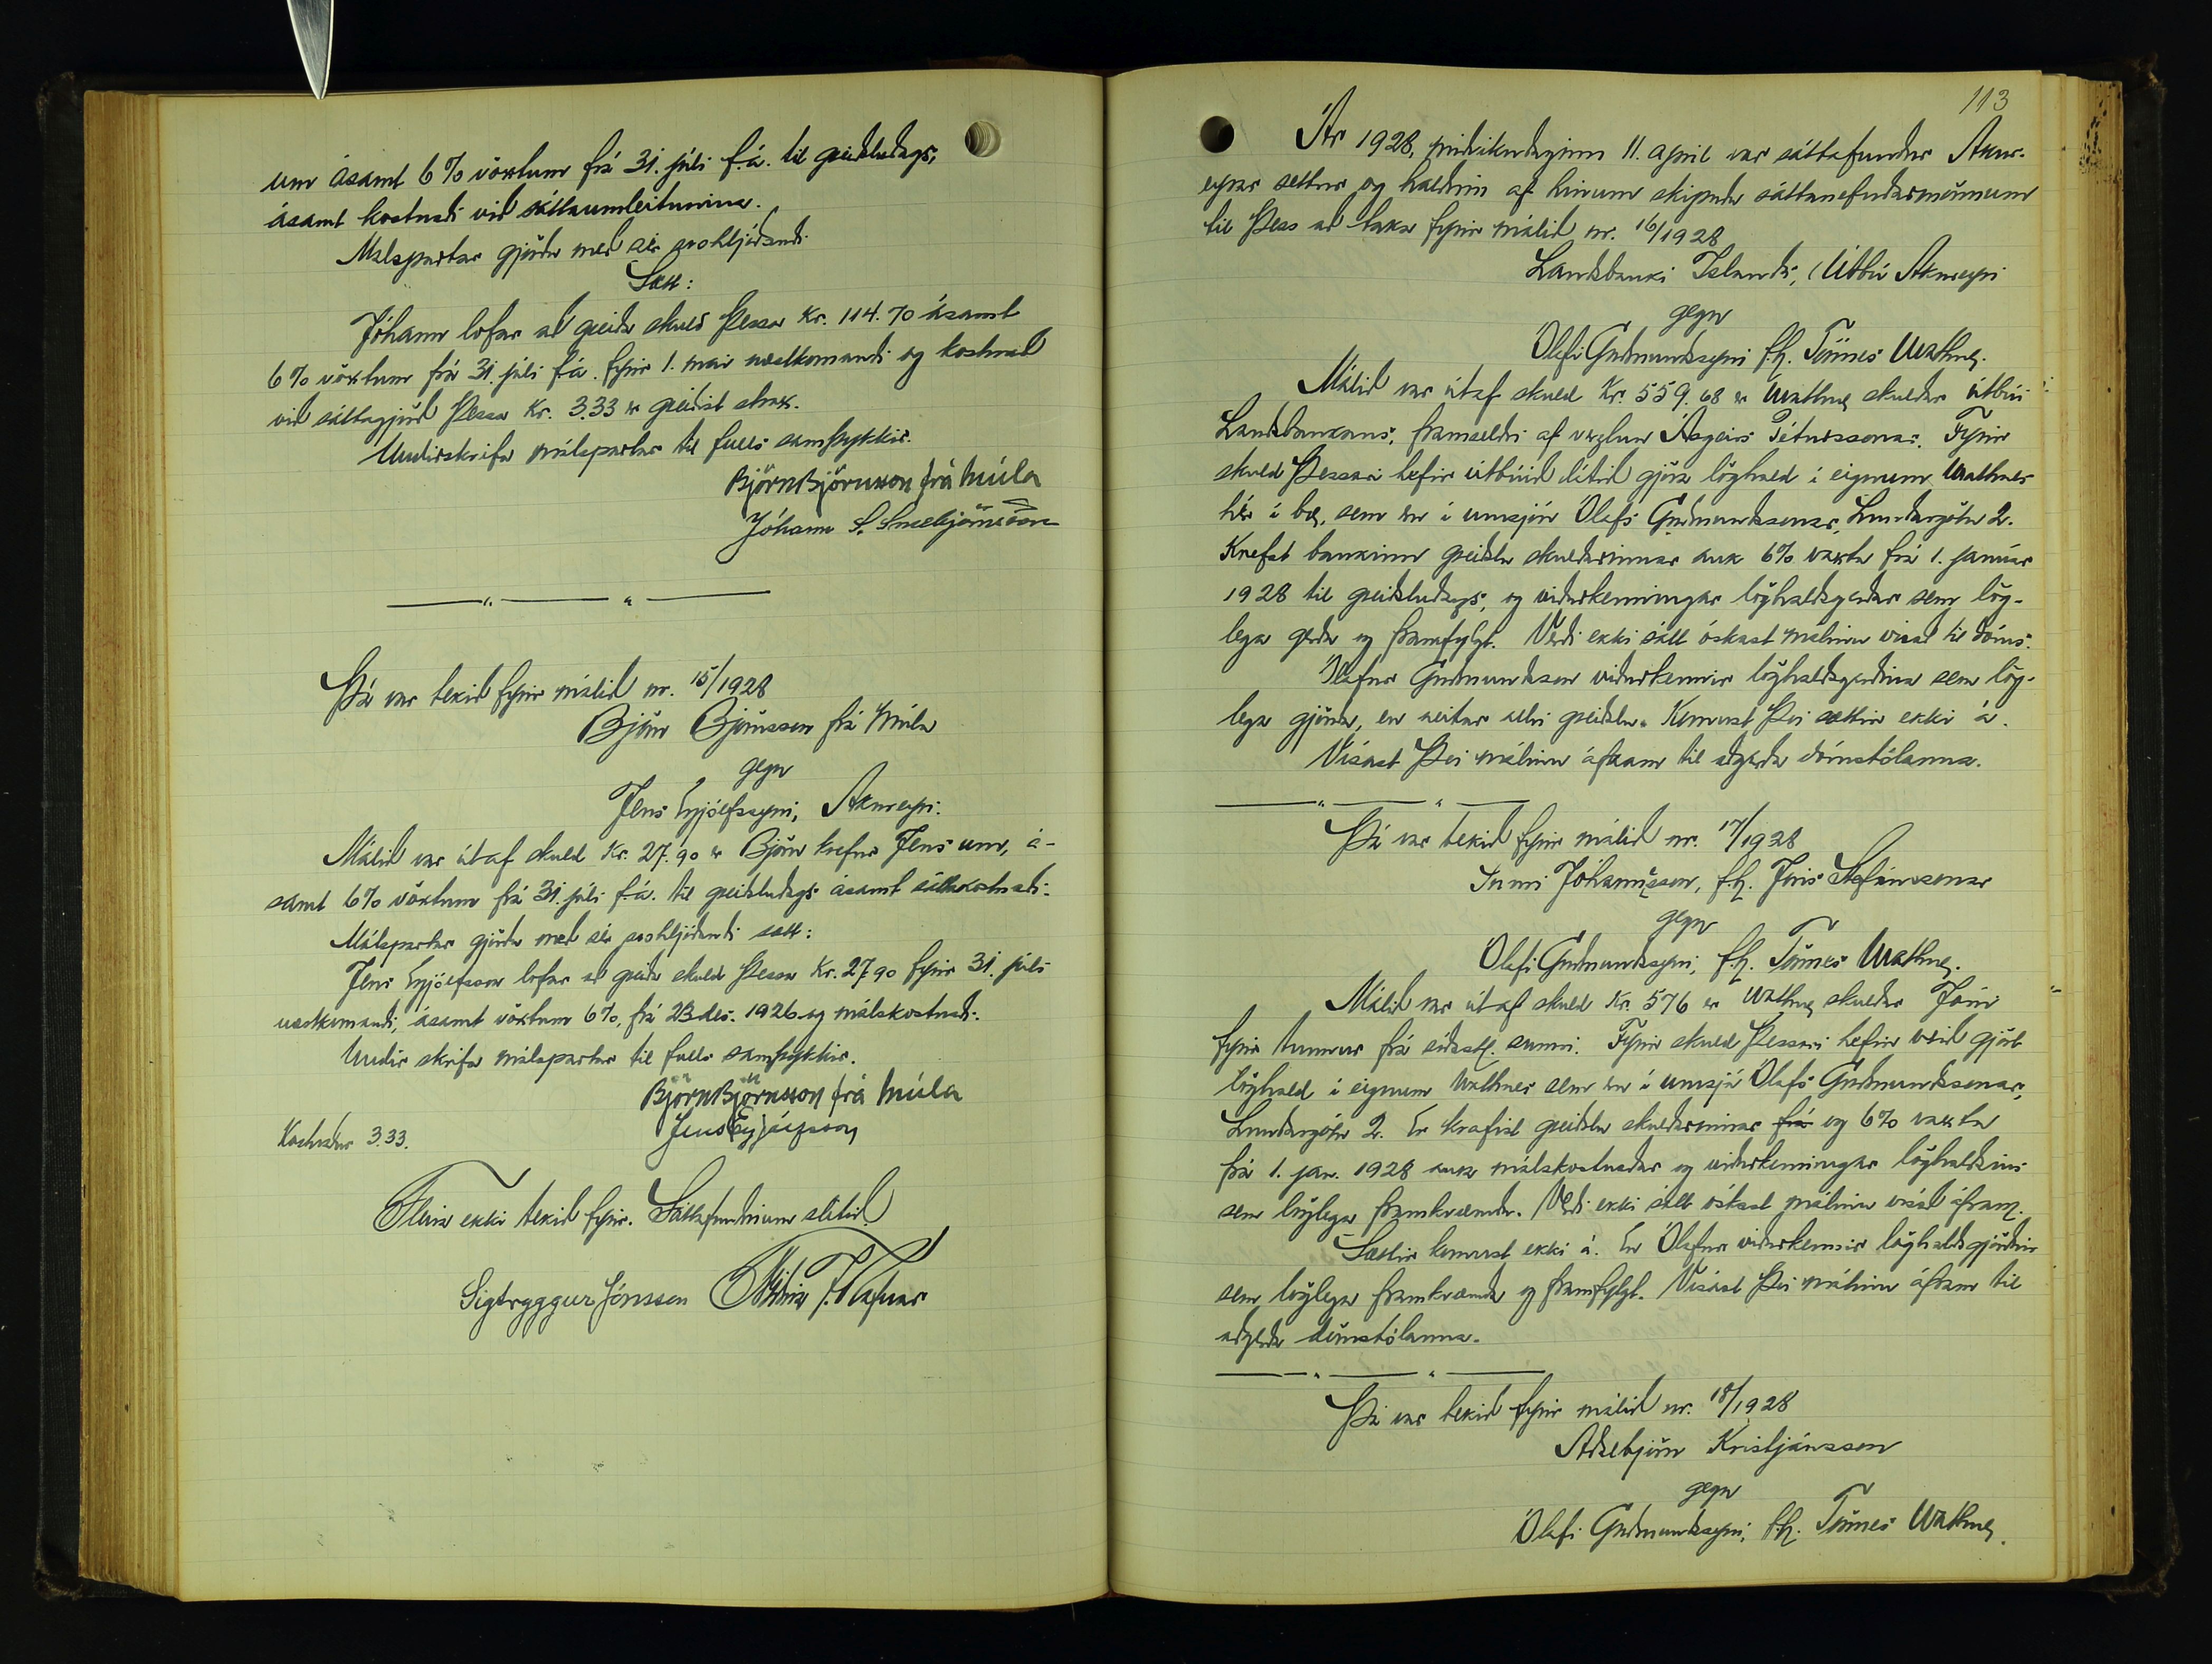 um ásamt 6% vöxtum frá 31. júlí f.á. til greiðsludags,
ásamt kostnaði við sáttaumleitunina.
Málspartar gjörðu með sér svohljóðandi
Sátt:
Jóhann lofar að greiða skuld þessa Kr. 114.70 ásamt
6% vöxtum frá 31. júlí f.á. fyrir 1. maí næstkomandi og kostnað
við sáttagjörð þessa Kr. 3.33 er greiðist strax.
Undirskrifa málspartar til fulls samþykkis.
Björn Björnsson frá Múla
Jóhann S. Snæbjörnsson
Þá var tekið fyrir málið nr. 15/1928
Björn Björnsson frá Múla
gegn
Jens Eyjólfssyni, Akureyri.
Málið var útaf skuld Kr. 27.90 er Björn krefur Jens um, á-
samt 6% vöxtum frá 31. júlí f.á. til greiðsludags ásamt sáttakostnaði.
Málspartar gjörðu með sér svohljóðandi sátt:
Jens Eyjólfsson lofar að greiða skuld þessa Kr. 27.90 fyrir 31. júlí
næstkomandi, ásamt vöxtum 6%, frá 23 des. 1926 og málskostnaði.
Undir skrifa málspartar til fulls samþykkis.
Björn Björnsson frá Múla
Jens Eyjólfsson
Kostnaður 3.33.
Fleira ekki tekið fyrir. Sáttafundinum slitið.
Sigtryggur Jónsson Friðrik J. Rafnar
113
Ár 1928, miðvikudaginn 11. apríl var sáttafundur Akur-
eyrar settur og haldinn af hinum skipuðu sáttanefndarmönnum
til þess að taka fyrir málið nr. 16/1928
Landsbanki Íslands, Útbú Akureyri
gegn
Ólafi Guðmundssyni f.h. Tönnes Wathne.
Málið var útaf skuld Kr. 559.68 er Wathne skuldar útbúi
Landsbankans, framseldri af verzlun Ásgeirs Péturssonar. Fyrir
skuld þessari hefir útbúið látið gjöra löghald í eignum Wathnes
hér í bæ, sem eru í umsjón Ólafs Guðmundssonar Lundargötu 2.
Krefst bankinn greiðslu skuldarinnar auk 6% vaxta frá 1. janúar
1928 til greiðsludags, og viðurkenningar löghaldsgerðar sem lög-
lega gerðar og framfylgt. Verði ekki sátt óskast málinu vísað til dóms.
Ólafur Guðmundsson viðurkennir löghaldsgerðina sem lög-
lega gjörða, en neitar allri greiðslu. Kemst því sættin ekki á.
Vísast því málinu áfram til aðgerða dómstólanna.
Þá var tekið fyrir málið nr. 17/1928
Tumi Jóhannsson, f.h. Jóns Stefánssonar
gegn
Ólafi Guðmundssyni, f.h. Tönnes Wathne.
Málið var útaf skuld Kr. 576 er Wathne skuldar Jóni
fyrir tunnur frá síðastl. sumri. Fyrir skuld þessari hefir verið gjört
löghald í eignum Wathnes sem eru í umsjá Ólafs Guðmundssonar,
Lundargötu 2. Er krafist greiðslu skuldarinnar frá og 6% vaxta
frá 1. jan. 1928 auk málskostnaðar og viðurkenningar löghaldsins
sem löglega framkvæmdu. Verði ekki sátt óskast málinu vísað áfram.
Sættir komust ekki á. En Ólafur viðurkennir löghaldsgjörðina
sem löglega framkvæmda og framfylgt. Vísast því málinu áfram til
aðgerða dómstólanna.
Þá var tekið fyrir málið nr. 18/1928
Aðalbjörn Kristjánsson
gegn
Ólafi Guðmundssyni, f.h. Tönnes Wathne.